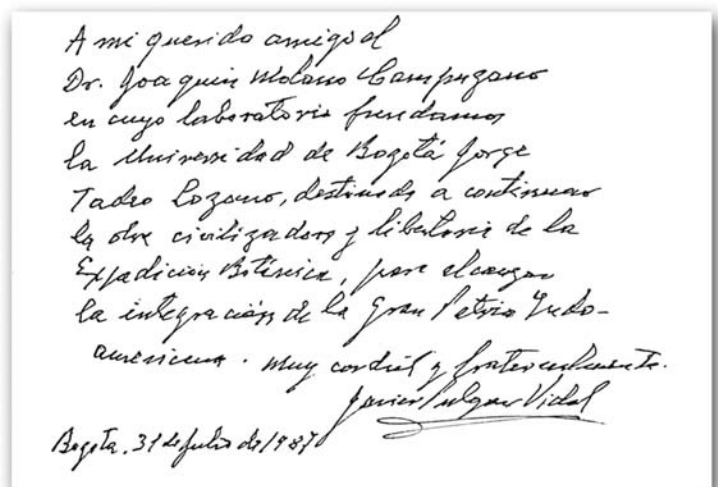 A mi querido amigo el
Dr. Joaquin Molano Campuzano
en cuyo laboratorio fundamos
la Universidad de Bogotá Jorge
Tadeo Lozano, destinada a continuar
la obra civilizadora y libertaria de la
Expedición Botánica, para alcanzar
la integración de la Gran Patria Indo-
americana. Muy cordial y fraternalmente.
Javier Pulgar Vidal
Bogotá, 31 de julio de 1987